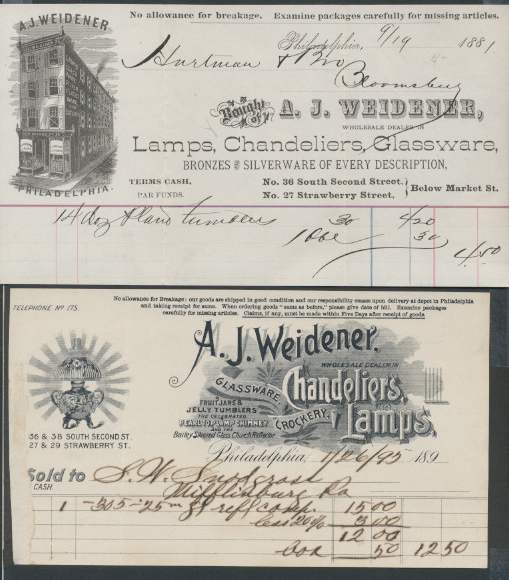 No allowance for breakage. Examine packages carefully for missing articles.
A.J. WEIDENER
PHILADELPHIA.
Philadelphia, 9/19 1881
Hartman & Bro
Bloomsburg
Bought of A. J. WEIDENER,
WHOLESALE DEALER IN
Lamps, Chandeliers, Glassware,
BRONZES AND SILVERWARE OF EVERY DESCRIPTION,
TERMS CASH, No. 36 South Second Street.
PAR FUNDS. No. 27 Strawberry Street, Below Market St.
14 doz Plain tumblers 30 4/20
1 bbl 30
4/50
No allowance for Breakage: our goods are shipped in good condition and our responsibility ceases upon delivery at depot in Philadelphia
and taking receipt for same. When ordering goods "same as before," please give date of bill. Examine packages
carefully for missing articles. Claims, if any, must be made within Five Days after receipt of goods.
TELEPHONE No 175.
A.J. Weidener,
WHOLESALE DEALER IN
GLASSWARE, Chandeliers,
FRUIT JARS &
JELLY TUMBLERS
THE CELEBRATED
PEARL TOP LAMP CHIMNEY
AND THE
Bailey Silvered Glass Church Reflector
CROCKERY, Lamps.
36 & 38 SOUTH SECOND ST.
27 & 29 STRAWBERRY ST.
Philadelphia, 1/26/95 189
Sold to S. W. Snodgrass
CASH. Mifflinburg Pa
1 - 305 - 25 in refl comp. 15 00
less 20% 3 00
12 00
box 50 12 50